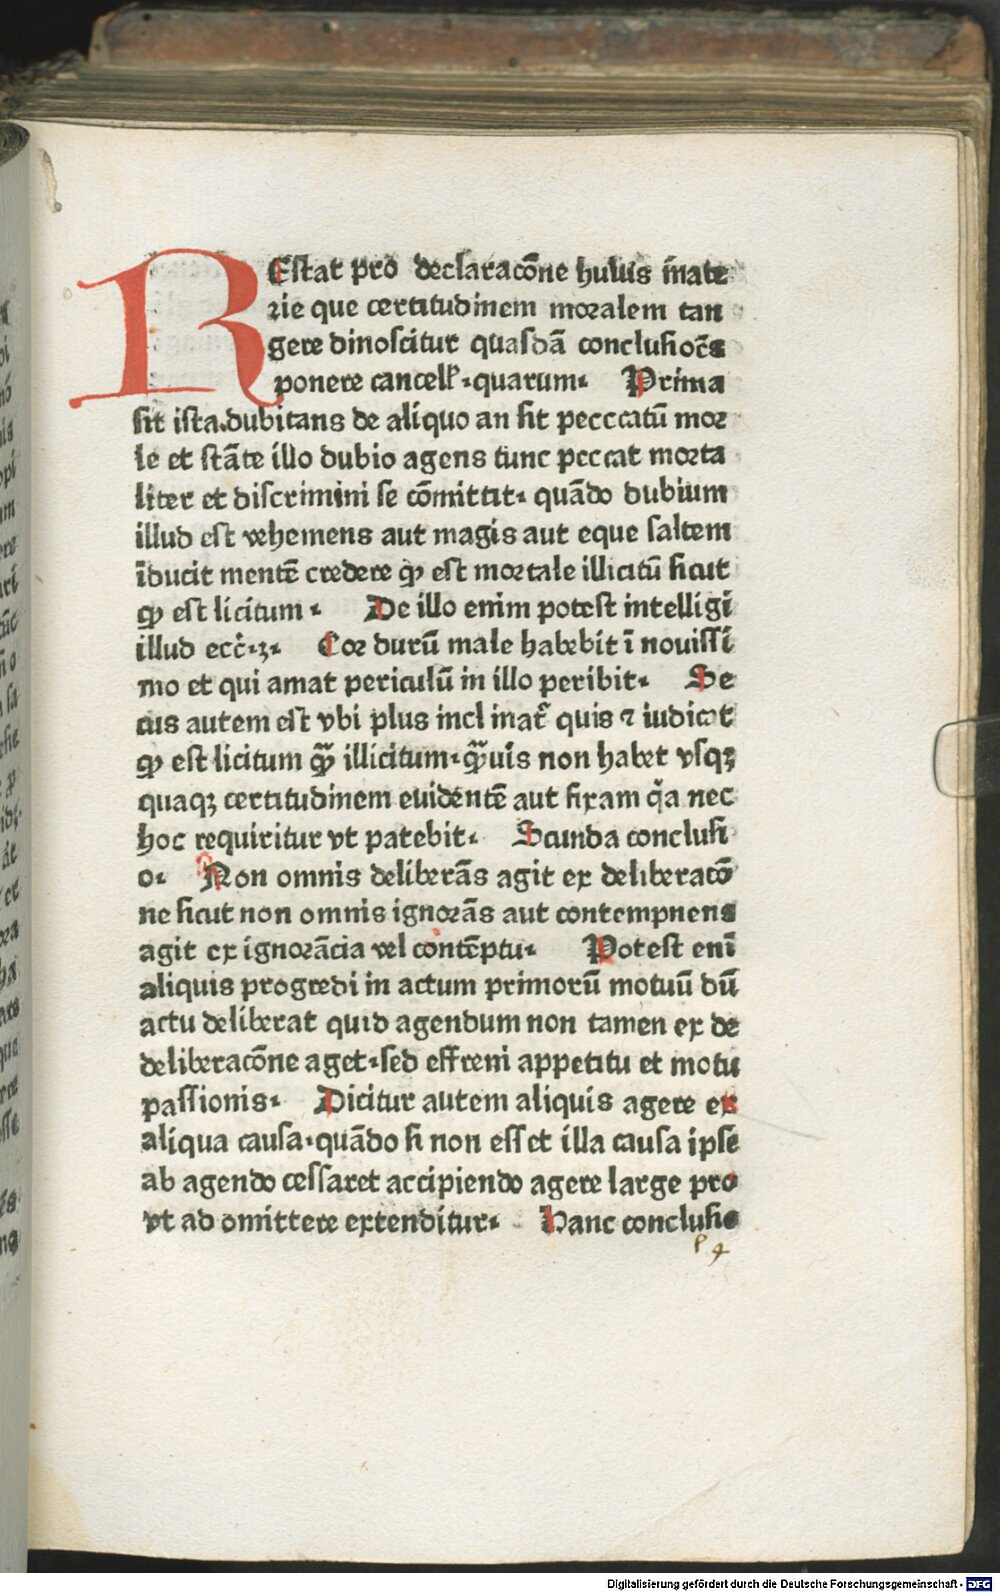 REstat pro declaracōne huius m̄ate
rie que certitudinem moralem tan
gere dinoscitur quasdā conclusiōēs
ponere cancell̄. quarum. Prima
sit ista. dubitans de aliquo an sit pecccatū mor
le et stāte illo dubio agens tunc peccat morta
liter et discrimini se cōmittit. quādo dubium
illud est vehemens aut magis aut eque saltem
īducit mentē credere ꝙ est mortale illicitū sicut
ꝙ est licitum. De illo enim potest intelligi
illud ecc̄.3. Cor durū male habebit ī nouissi
mo et qui amat periculū in illo peribit. Se
cus autem est vbi plus incl inat̄ quis ⁊ iudicat
ꝙ est licitum ꝙ̄ illicitum. ꝙ̄uis non habet vsqꝫ
quaqꝫ certitudinem euidentē aut fixam q̇a nec
hoc requiritur vt patebit. Scunda conclusi
o. Non omnis deliberās agit ex deliberacō
ne sicut non omnis ignorās aut contempnens
agit ex ignorācia vel contēptu. Potest enī
aliquis progredi in actum primorū motuū dū
actu deliberat quid agendum non tamen ex de
deliberacōne aget. sed effreni appetitu et motu
passionis. Dicitur autem aliquis agere ex
aliqua causa. quādo si non esset illa causa ipse
ab agendo cessaret accipiendo agere large pro
vt ad omittere extenditur. Hanc conclusio
Digitalisierung gefördert durch die Deutsche Forschungsgemeinschaft - DFG